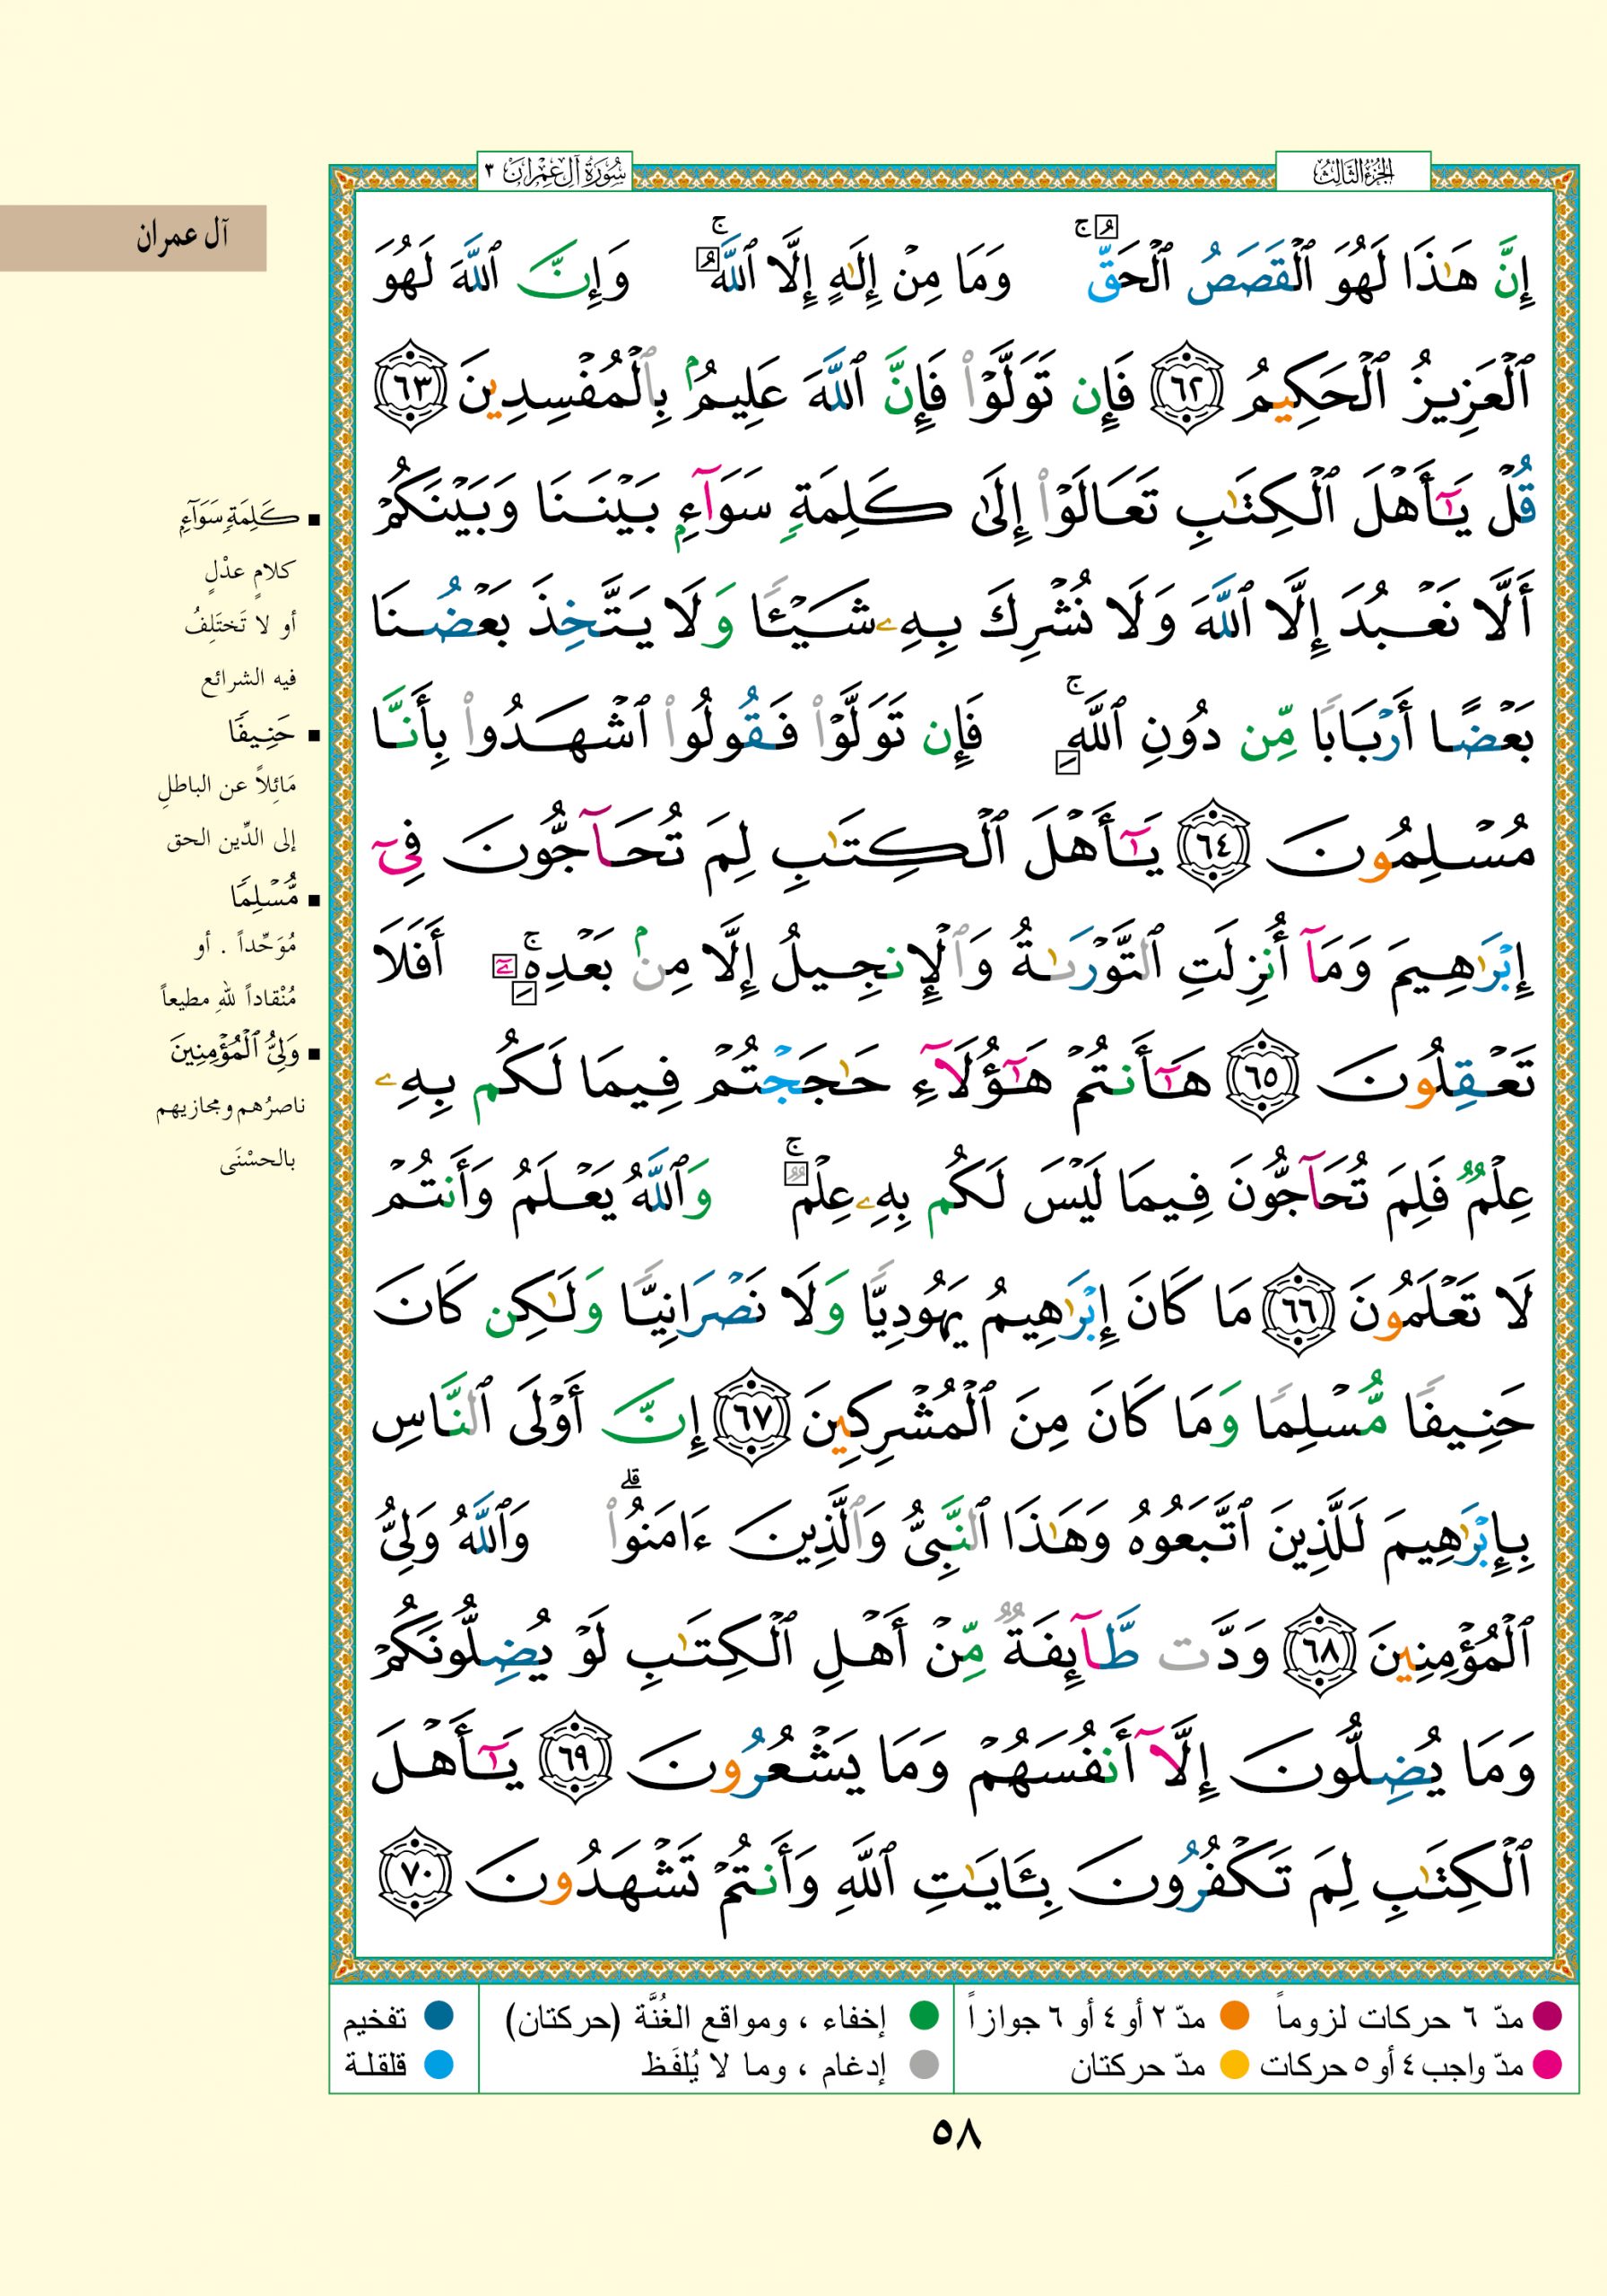 الجزء الثالث
سورة آل عمران ٣
آل عمران
إِنَّ هَٰذَا لَهُوَ ٱلْقَصَصُ ٱلْحَقُّ ۚ وَمَا مِنْ إِلَٰهٍ إِلَّا ٱللَّهُ ۚ وَإِنَّ ٱللَّهَ لَهُوَ
ٱلْعَزِيزُ ٱلْحَكِيمُ ٦٢ فَإِن تَوَلَّوْا۟ فَإِنَّ ٱللَّهَ عَلِيمٌۢ بِٱلْمُفْسِدِينَ ٦٣
قُلْ يَٰٓأَهْلَ ٱلْكِتَٰبِ تَعَالَوْا۟ إِلَىٰ كَلِمَةٍ سَوَآءٍۭ بَيْنَنَا وَبَيْنَكُمْ
أَلَّا نَعْبُدَ إِلَّا ٱللَّهَ وَلَا نُشْرِكَ بِهِۦ شَيْـًٔا وَلَا يَتَّخِذَ بَعْضُنَا
بَعْضًا أَرْبَابًا مِّن دُونِ ٱللَّهِ ۚ فَإِن تَوَلَّوْا۟ فَقُولُوا۟ ٱشْهَدُوا۟ بِأَنَّا
مُسْلِمُونَ ٦٤ يَٰٓأَهْلَ ٱلْكِتَٰبِ لِمَ تُحَآجُّونَ فِىٓ
إِبْرَٰهِيمَ وَمَآ أُنزِلَتِ ٱلتَّوْرَىٰةُ وَٱلْإِنجِيلُ إِلَّا مِنۢ بَعْدِهِۦٓ ۚ أَفَلَا
تَعْقِلُونَ ٦٥ هَٰٓأَنتُمْ هَٰٓؤُلَآءِ حَٰجَجْتُمْ فِيمَا لَكُم بِهِۦ
عِلْمٌ فَلِمَ تُحَآجُّونَ فِيمَا لَيْسَ لَكُم بِهِۦ عِلْمٌ ۚ وَٱللَّهُ يَعْلَمُ وَأَنتُمْ
لَا تَعْلَمُونَ ٦٦ مَا كَانَ إِبْرَٰهِيمُ يَهُودِيًّا وَلَا نَصْرَانِيًّا وَلَٰكِن كَانَ
حَنِيفًا مُّسْلِمًا وَمَا كَانَ مِنَ ٱلْمُشْرِكِينَ ٦٧ إِنَّ أَوْلَى ٱلنَّاسِ
بِإِبْرَٰهِيمَ لَلَّذِينَ ٱتَّبَعُوهُ وَهَٰذَا ٱلنَّبِىُّ وَٱلَّذِينَ ءَامَنُوا۟ ۗ وَٱللَّهُ وَلِىُّ
ٱلْمُؤْمِنِينَ ٦٨ وَدَّت طَّآئِفَةٌ مِّنْ أَهْلِ ٱلْكِتَٰبِ لَوْ يُضِلُّونَكُمْ
وَمَا يُضِلُّونَ إِلَّآ أَنفُسَهُمْ وَمَا يَشْعُرُونَ ٦٩ يَٰٓأَهْلَ
ٱلْكِتَٰبِ لِمَ تَكْفُرُونَ بِـَٔايَٰتِ ٱللَّهِ وَأَنتُمْ تَشْهَدُونَ ٧٠
■ كَلِمَةٍ سَوَآءٍ
كلامٍ عدْلٍ
أو لا تَختَلِفُ
فيه الشرائع
■ حَنِيفًا
مَائِلاً عن الباطلِ
إلى الدِّين الحق
■ مُّسْلِمًا
مُوَحِّداً . أو
مُنْقاداً للهِ مطيعاً
■ وَلِىُّ ٱلْمُؤْمِنِينَ
ناصرُهم ومجازيهم
بالحسْنَى
مدّ ٦ حركات لزوماً مدّ ٢ أو ٤ أو ٦ جوازاً إخفاء ، ومواقع الغُنَّة (حركتان) تفخيم
مدّ واجب ٤ أو ٥ حركات مدّ حركتان إدغام ، وما لا يُلفَظ قلقلة
٥٨